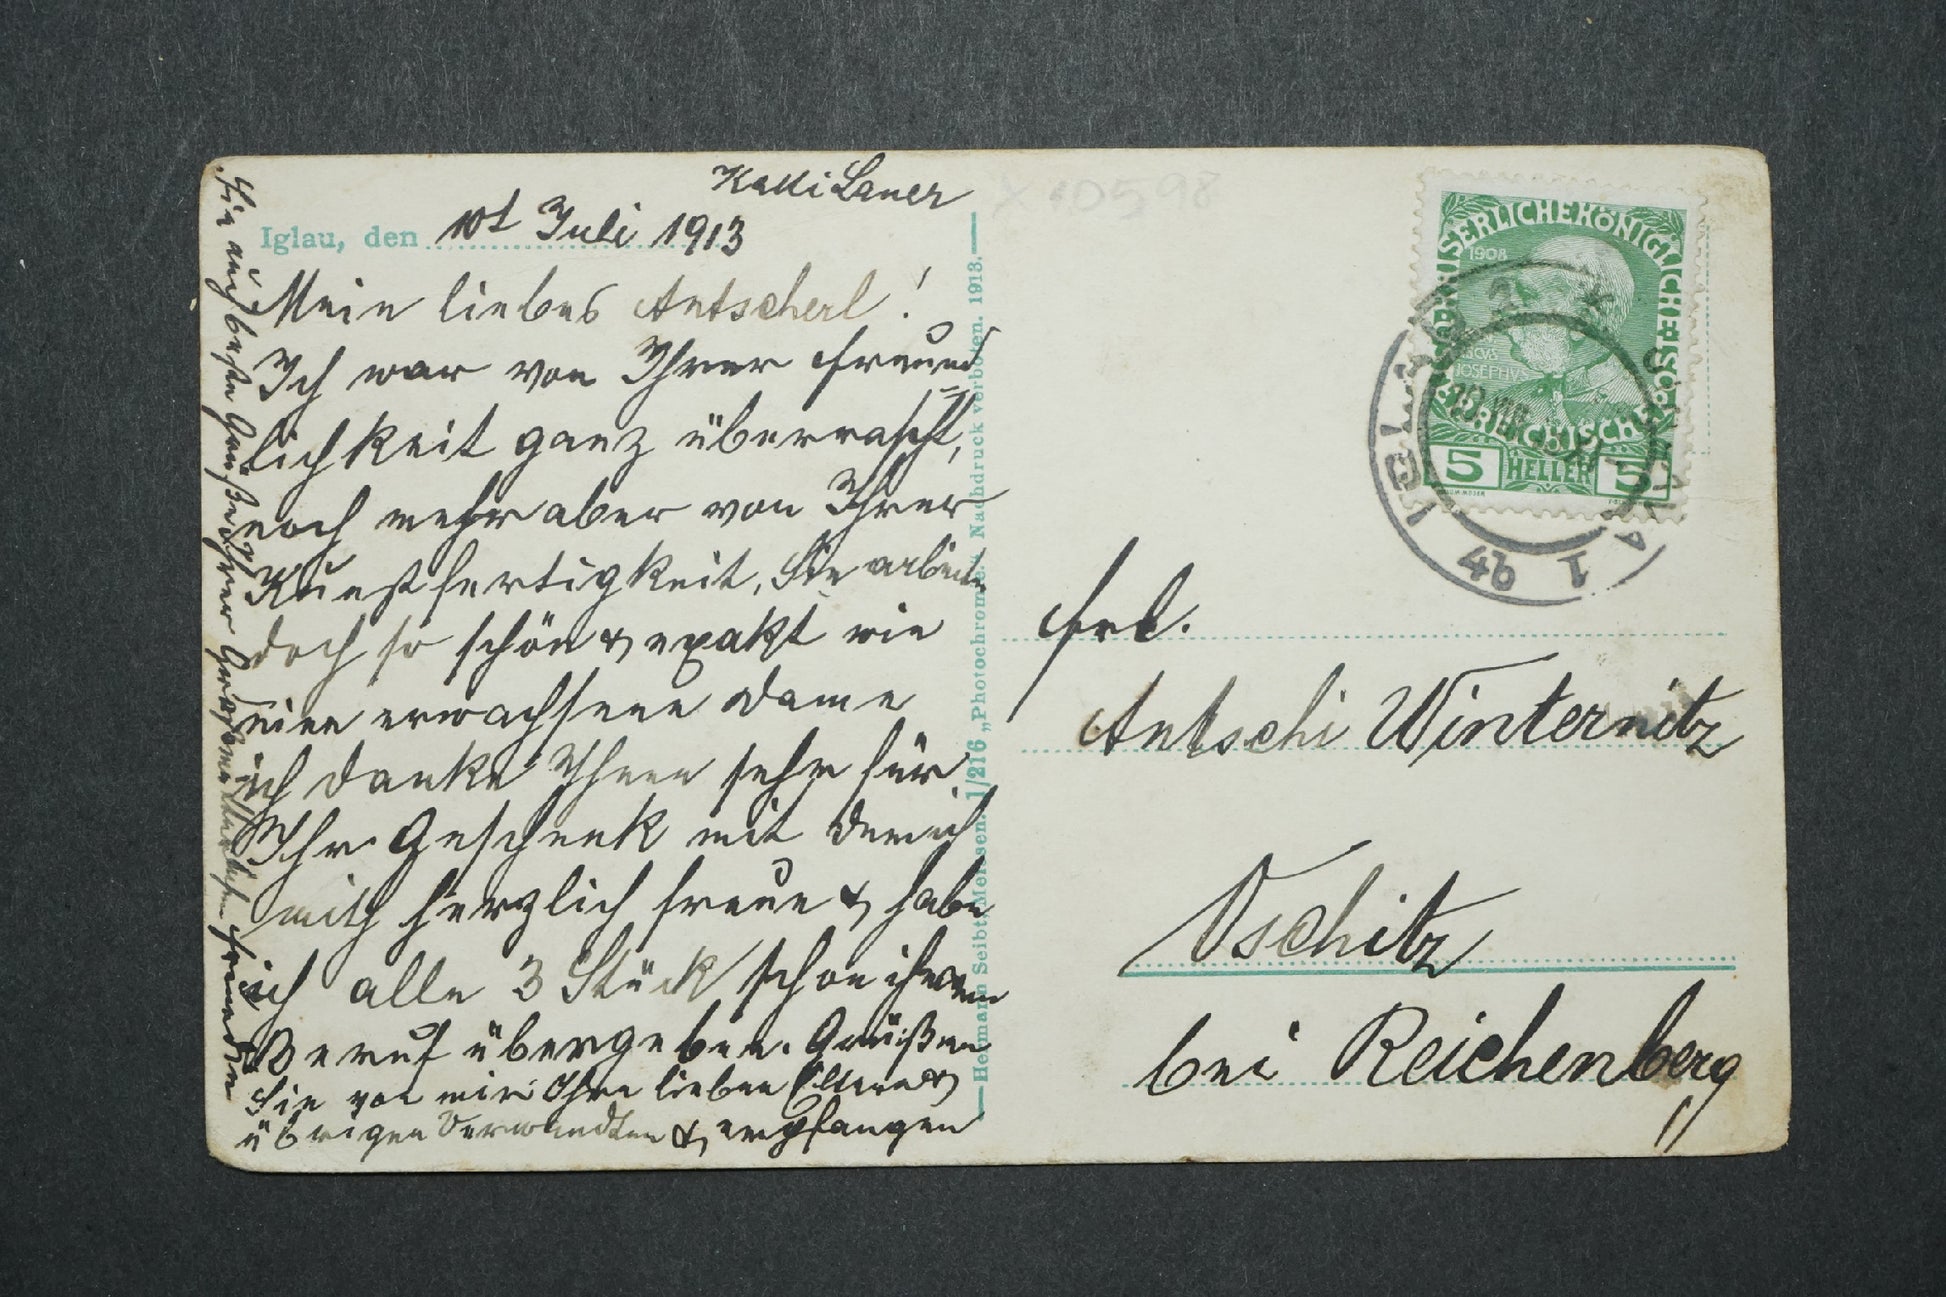 Kathi Lauer
Iglau, den 10t Juli 1913
Mein liebes Antscherl!
Ich war von Ihrer Freund
lichkeit ganz überrascht,
noch mehr aber von Ihrer
Kunstfertigkeit. Sie arbeiten
doch so schön & exakt wie
eine erwachsene Dame
ich danke Ihnen sehr für
Ihr Geschenk mit dem ich
mich herzlich freue & habe
ich alle 3 Stück schon ihrem
Beruf übergeben. Grüßen
Sie von mir Ihre lieben Eltern &
übrigen Verwandten & empfangen
Sie auch beste Grüße Ihrer
Hermann Seibt, Meissen. 1/216 „Photochromie." Nachdruck verboten. 1913.
KAISERLICHE KÖNIGLICHE ÖSTERREICHISCHE
1908
JOSEPHVS
5 HELLER 5
IGLAU 2
JIHLAVA
4b
1
Frl.
Antschi Winternitz
Oschitz
bei Reichenberg